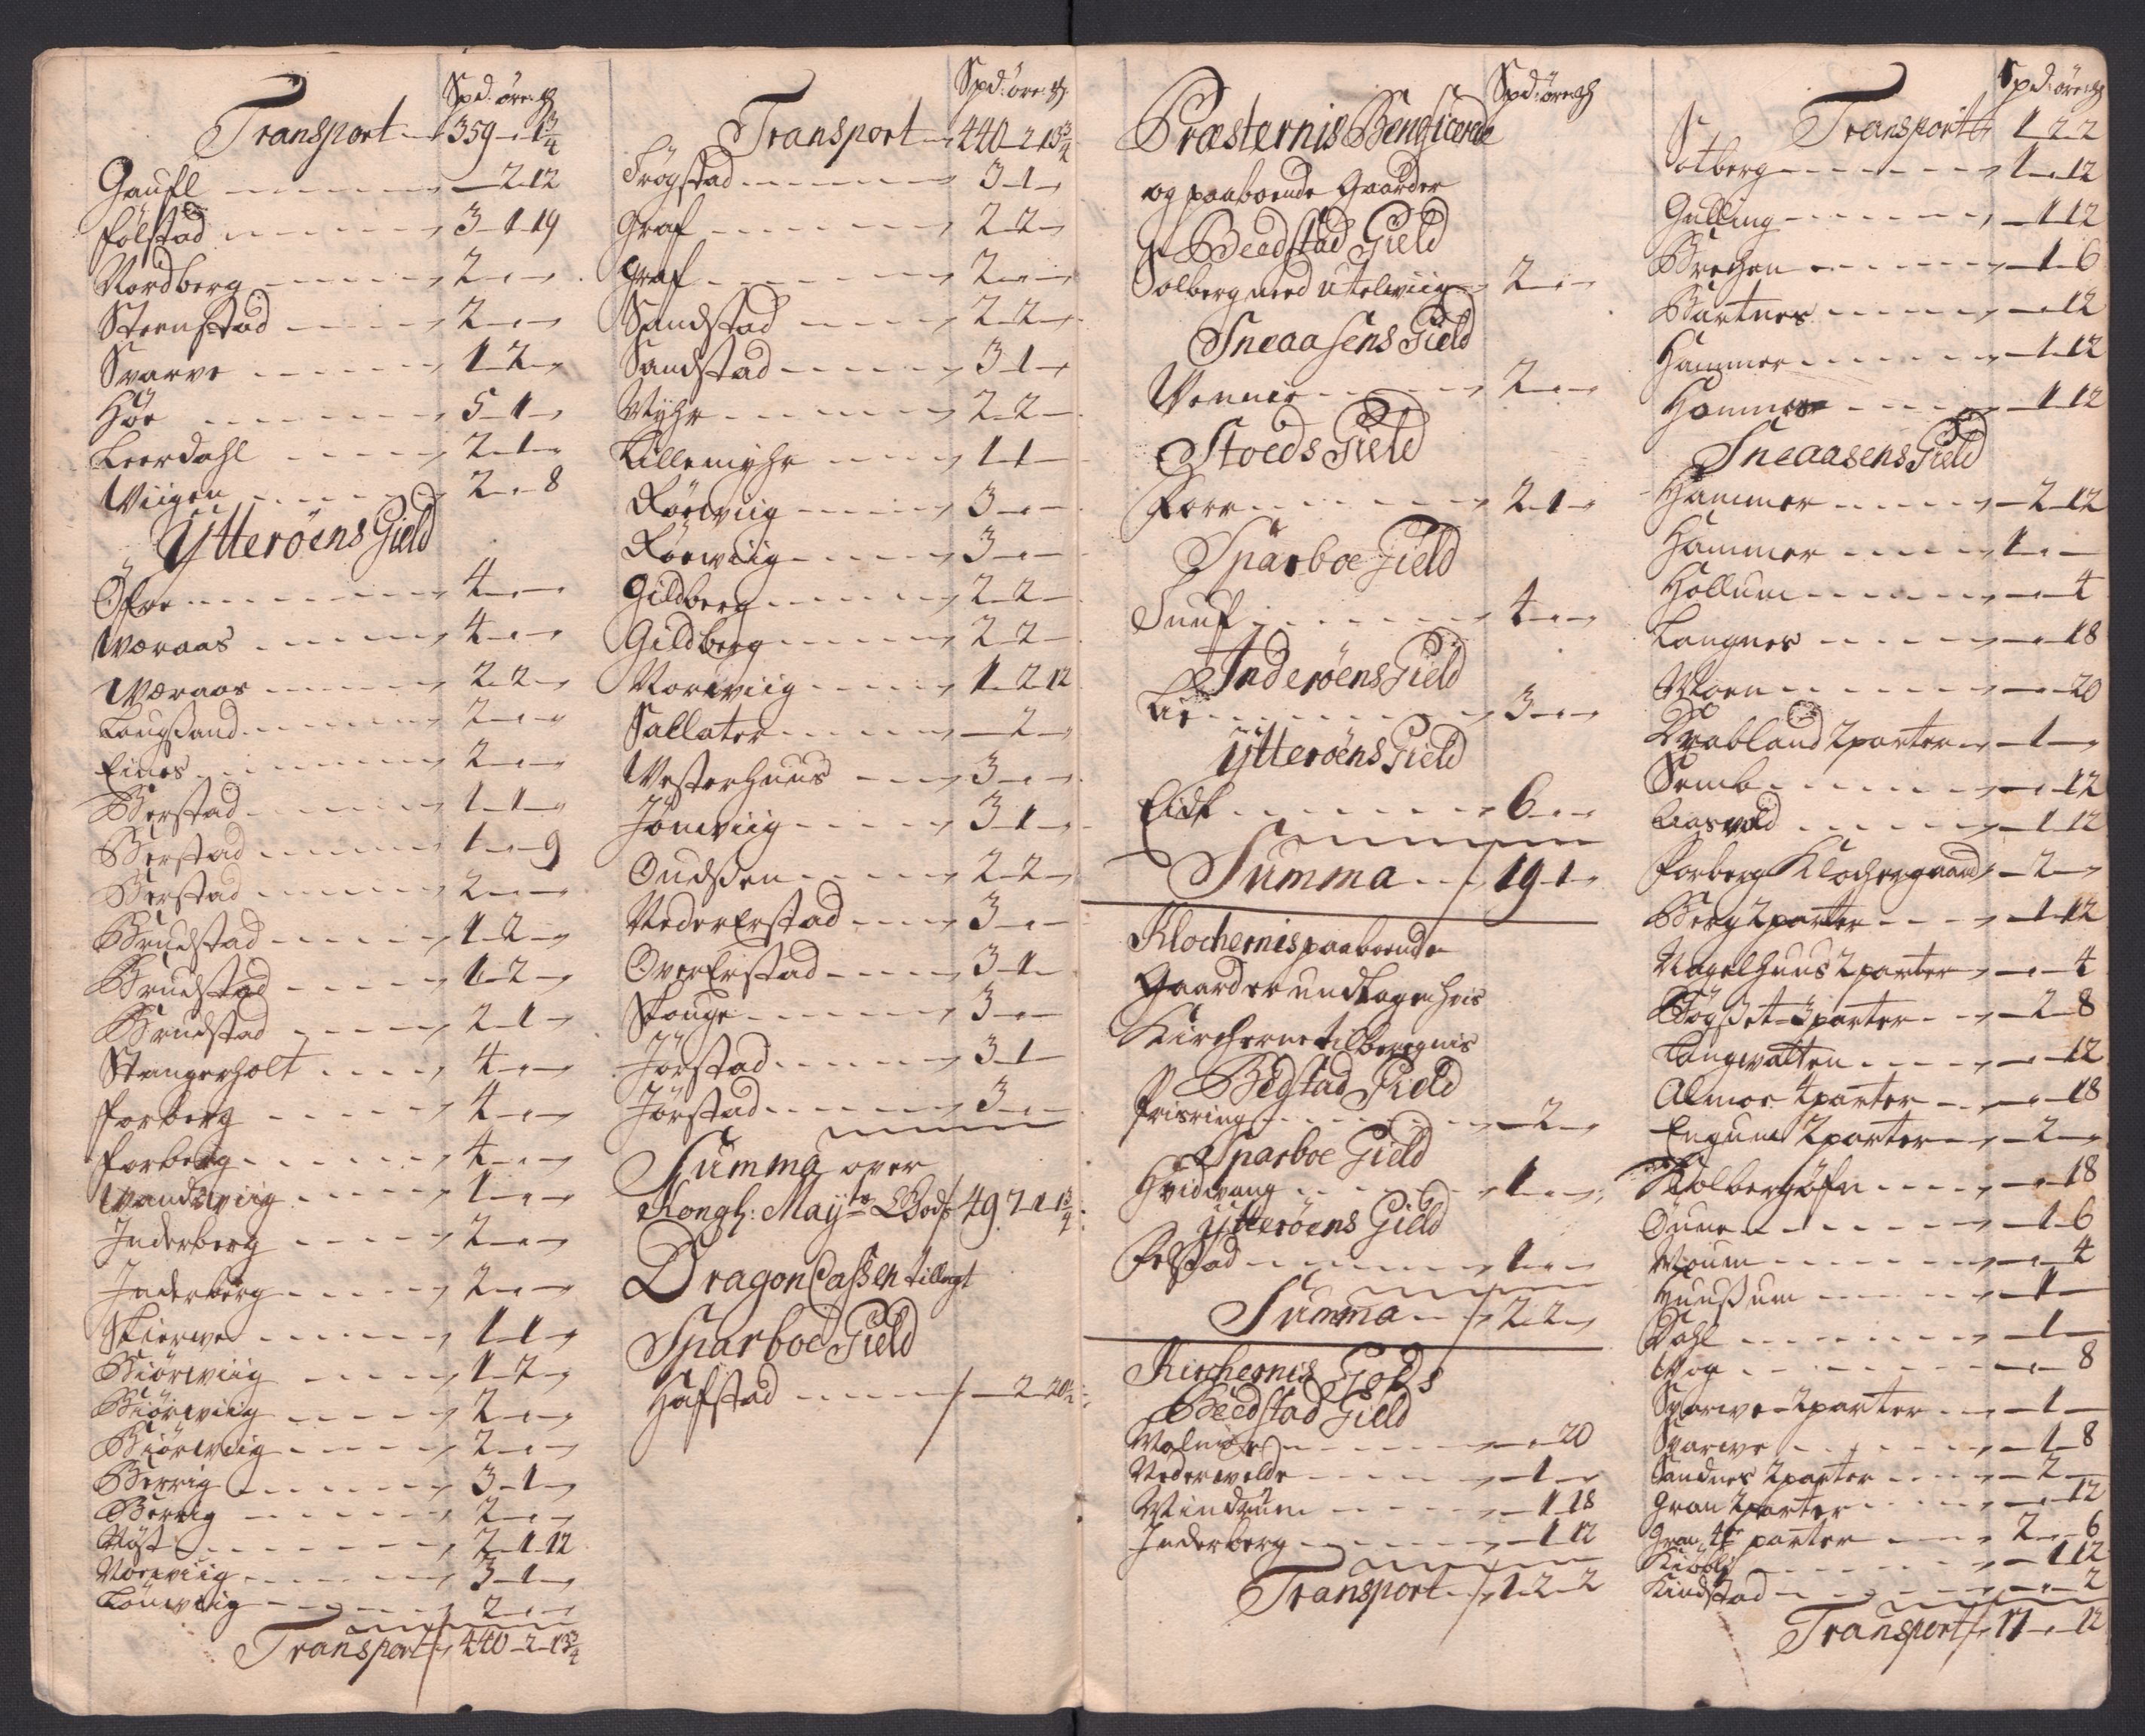 Spd: öre:
Transport 359 - 1¾
Gausl - 2 12
Följstad 3 1 19
Nordberg 2 - -
Steenstad 2 - -
Svarve 1 2 -
Höe 5 1 -
Leerdahl 2 1 -
Wiigen 2 - 8
Ytterøens Gield
Öfre 4 - -
Wæraas 4 - -
Wæraas 2 2 -
Laugsand 2 - -
Eines 2 - -
Berstad 1 1 -
Berstad 1 - 9
Berstad 2 - -
Brudstad 1 2 -
Brudstad 1 2 -
Brudstad 2 1 -
Stangerholt 4 - -
Forberg 4 - -
Forberg 4 - -
Wandswiig 1 - -
Inderberg 2 - -
Inderberg 2 - -
Skierwe 1 1 -
Biörwiig 1 2 -
Biörwiig 2 - -
Biörwiig 2 - -
Berrig 3 1 -
Berrig 2 - -
Nöst 2 1 12
Norwiig 3 1 -
Lönwiig 2 - -
Transport 440 2 13¾
Spd: öre:
Transport 440 2 13¾
Trögstad 3 1 -
Graf 2 2 -
Graf 2 - -
Sandstad 2 2 -
Sandstad 3 1 -
Myhr 2 2 -
Lillemyhr 1 1 -
Röewiig 3 - -
Röewiig 3 - -
Gildberg 2 2 -
Gildberg 2 2 -
Norwiig 1 2 12
Sallater - 2 -
Westerhuus 3 - -
Jönwiig 3 1 -
Oudßen 2 2 -
Neder Erstad 3 - -
Over Erstad 3 1 -
Skouge 3 - -
Jörstad 3 1 -
Jörstad 3 - -
Summa over
Kongl: Mayts Gods 497 1 1¾
Dragon Cassen tillagt
Sparboe Gield
Hafstad - 2 20½
Spd: öre
Præsternis Beneficerede
og paaboende Gaarder
Beedstad Gield
Solberg med Utelwiig 2 - -
Sneaasens Gield
Wennes 2 - -
Stoeds Gield
Forr 2 1 -
Sparboe Gield
Suuf 4 - -
Inderøens Gield
Lie 3 - -
Ytterøens Gield
Eidt 6 - -
Summa 19 1 -
Klochernis paaboende
Gaarder undtagen hvis
Kircherne tilberegnis
Begstad Gield
Frisring - 2 -
Sparboe Gield
Hvidvang 1 - -
Ytterøens Gield
Følstad 1 - -
Summa 2 2 -
Kirchernis Gods
Beedstad Gield
Malmoe - - 20
Nederwelde - 1 -
Windrüm - 1 18
Inderberg - 1 12
Transport 1 2 2
Spd: öre
Transport 1 2 2
Solberg 1 - 12
Gulling - 1 12
Brechen - 1 6
Bartnes - - 12
Hammer - 1 12
Hammer - 1 12
Sneaasens Gield
Hammer - 2 12
Hammer 1 - -
Hollum - - 4
Langnes - - 18
Moen - - 20
Krabland 2 parter - 1 -
Semb - - 12
Aasvold - 1 12
Forberg Klochergaard - 2 -
Berg 2 parter - 1 12
Nagelhuus 2 parter - - 4
Bögßet 3 parter - 2 8
Langwatten - - 12
Almoe 4 parter - - 18
Engum 2 parter - 2 -
Kolbergöfn - - 18
Ounen - 1 6
Moum - - 4
Huußum - 1 -
Dahl - 1 -
Wog - - 8
Svarwe 2 parter - 1 -
Svarwe - 1 8
Sandnes 2 parter - 2 -
Gran 2 parter - - 12
Gran 4de parter 2 - 6
Kiröbli - 1 12
Kindstad - - 2
Transport 17 - 12